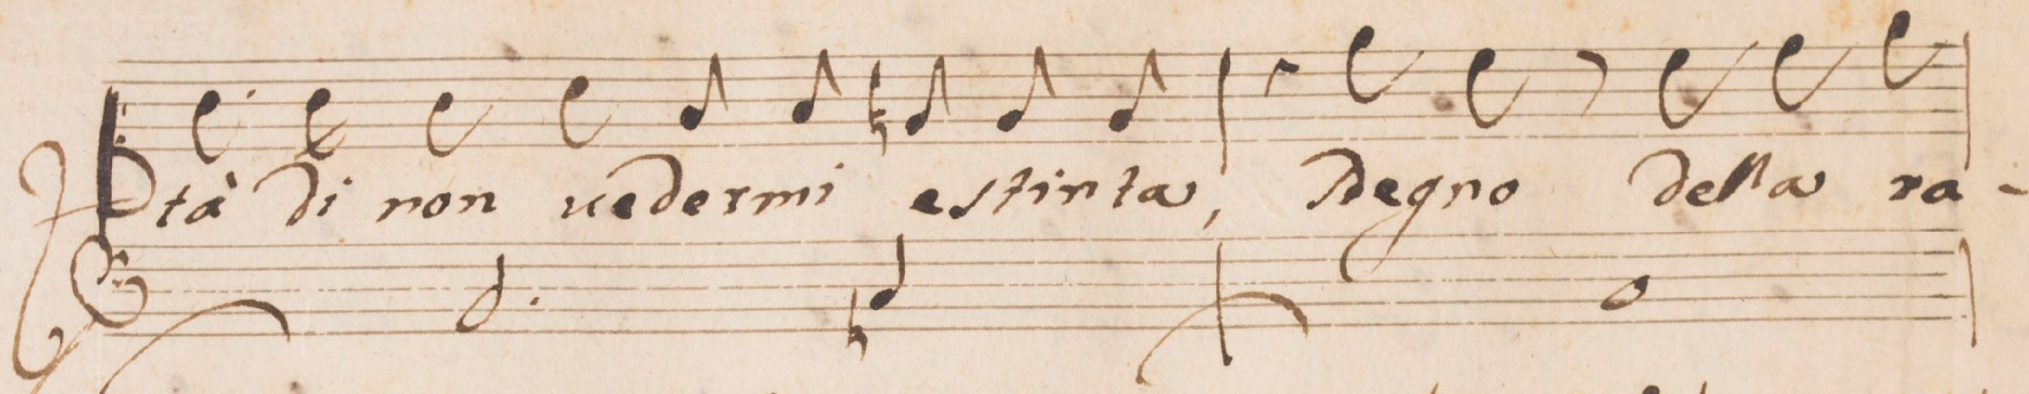 tà di non uedermi estinta, Degno della ra-